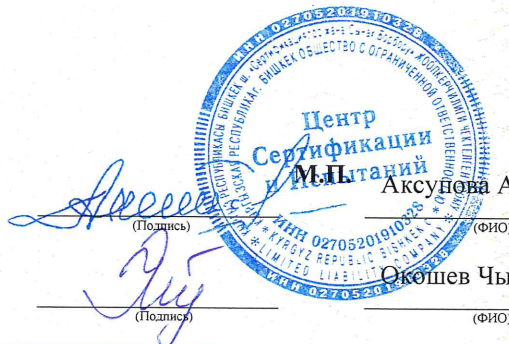 ИНН 02705201910328
РЕСПУБЛИКАСЫ БИШКЕК ш. «Сертификация жана Сыноо Борбору» ЖООПКЕРЧИЛИГИ ЧЕКТЕЛГЕН
КЫРГЫЗСКАЯ РЕСПУБЛИКА г. БИШКЕК ОБЩЕСТВО С ОГРАНИЧЕННОЙ ОТВЕТСТВЕННОСТЬЮ
Центр
Сертификации
и Испытаний
М.П.
Аксупова А
ИНН 02705201910328
KYRGYZ REPUBLIC BISHKEK
LIMITED LIABILITY COMPANY
ИНН 02705201910328
(Подпись)
(ФИО
Окошев Чы
(Подпись)
(ФИО